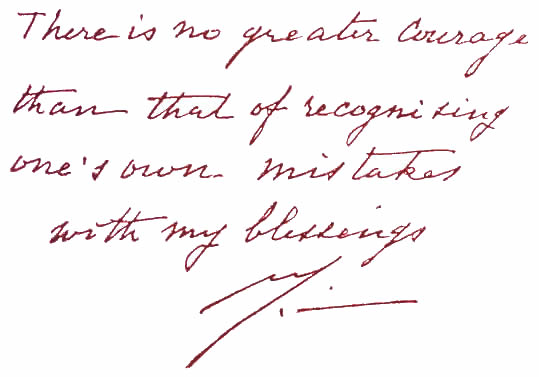 There is no greater courage
than that of recognising
one's own mistakes
with my blessings